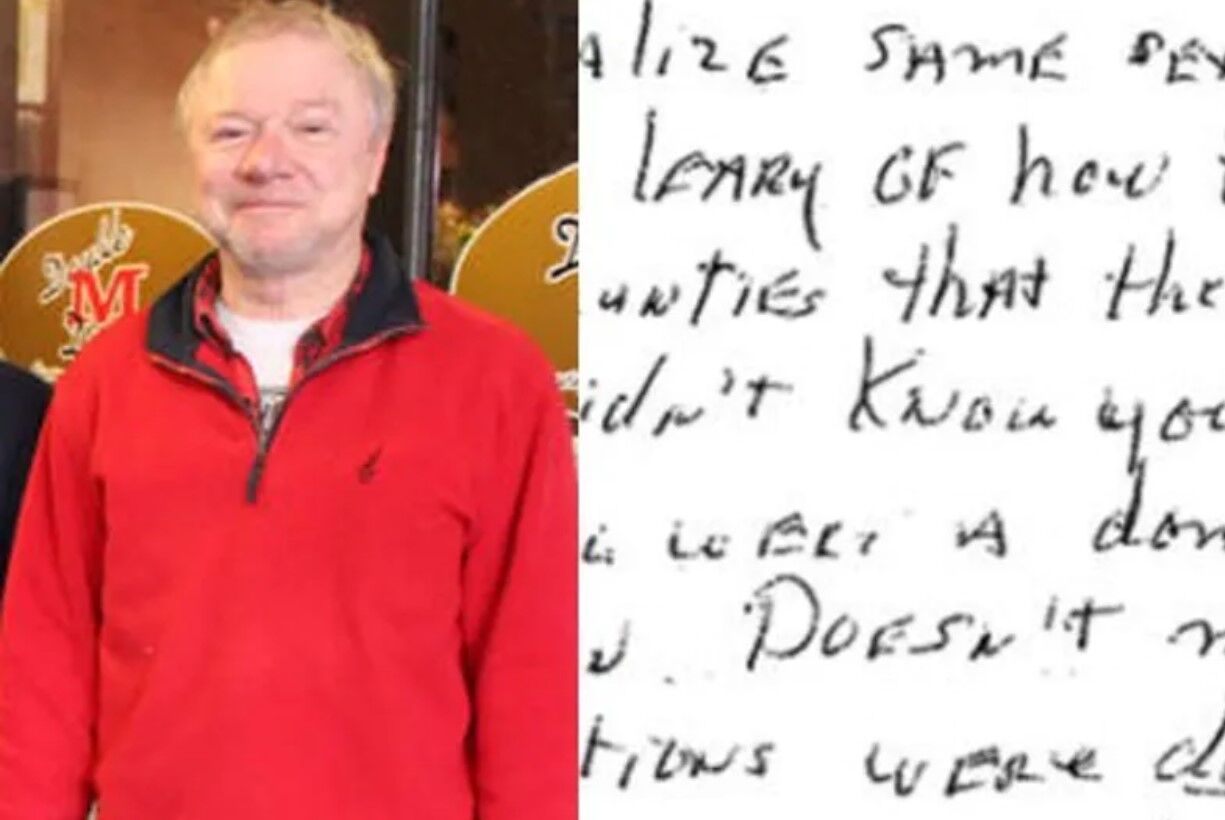 Double
M
alize same sex
leary of how
unties that the
idn't know you
u wert a don
n. Doesn't m
tions were d